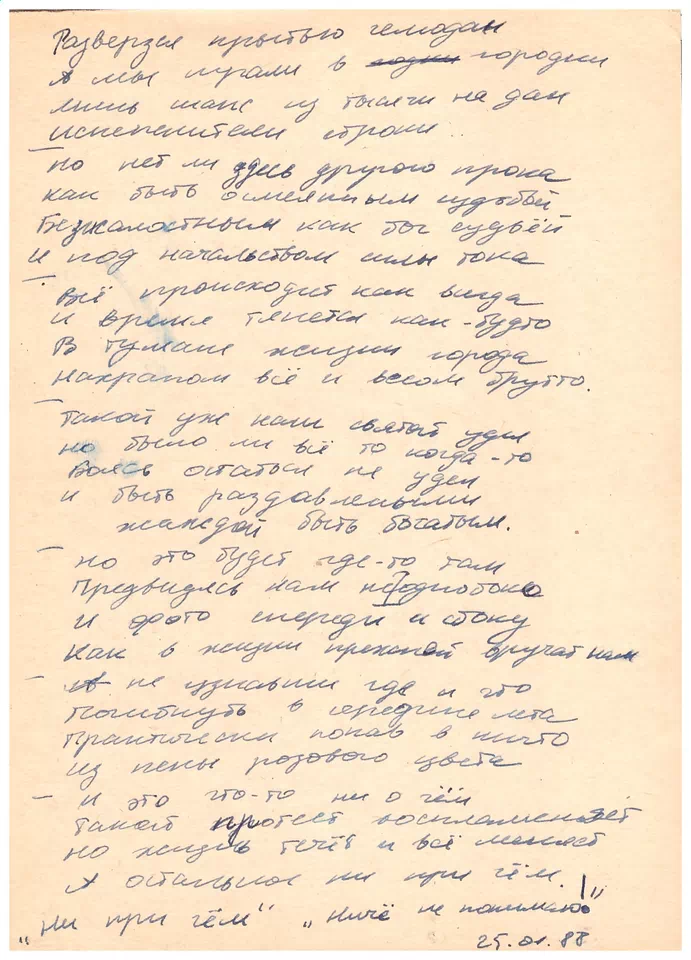 Разверзся прытью чемодан
А мы играли в городки
лишь шанс из тысячи на дан
испепелители строки..
но нет ли здесь другого прока
как быть осмеянным судьбой
Безжалостным как бы судьёй
И под начальством силы тока
Всё происходит как всегда
и время тянется как-будто
В тумане жизни города
Нахрапом всё и весом брутто.
Такой уж наш святой удел
но было ли всё то когда-то
Боясь остаться не удел
и быть раздавленными
жаждой быть богатым.
но это будет где-то там
Предвидясь нам неоднобоко
И фото спереди и сбоку
Как в жизни прежней вручат нам
не узнавши где и что
Погибнуть в середине лета
Практически попав в ничто
из пены розового цвета
И это что-то ни о чём
Такой протест воспламеняет
Но жизнь течёт и всё меняет
А остальное ни при чём.
„Ни при чём“ „Ничё не понимаю!“
25.01.88